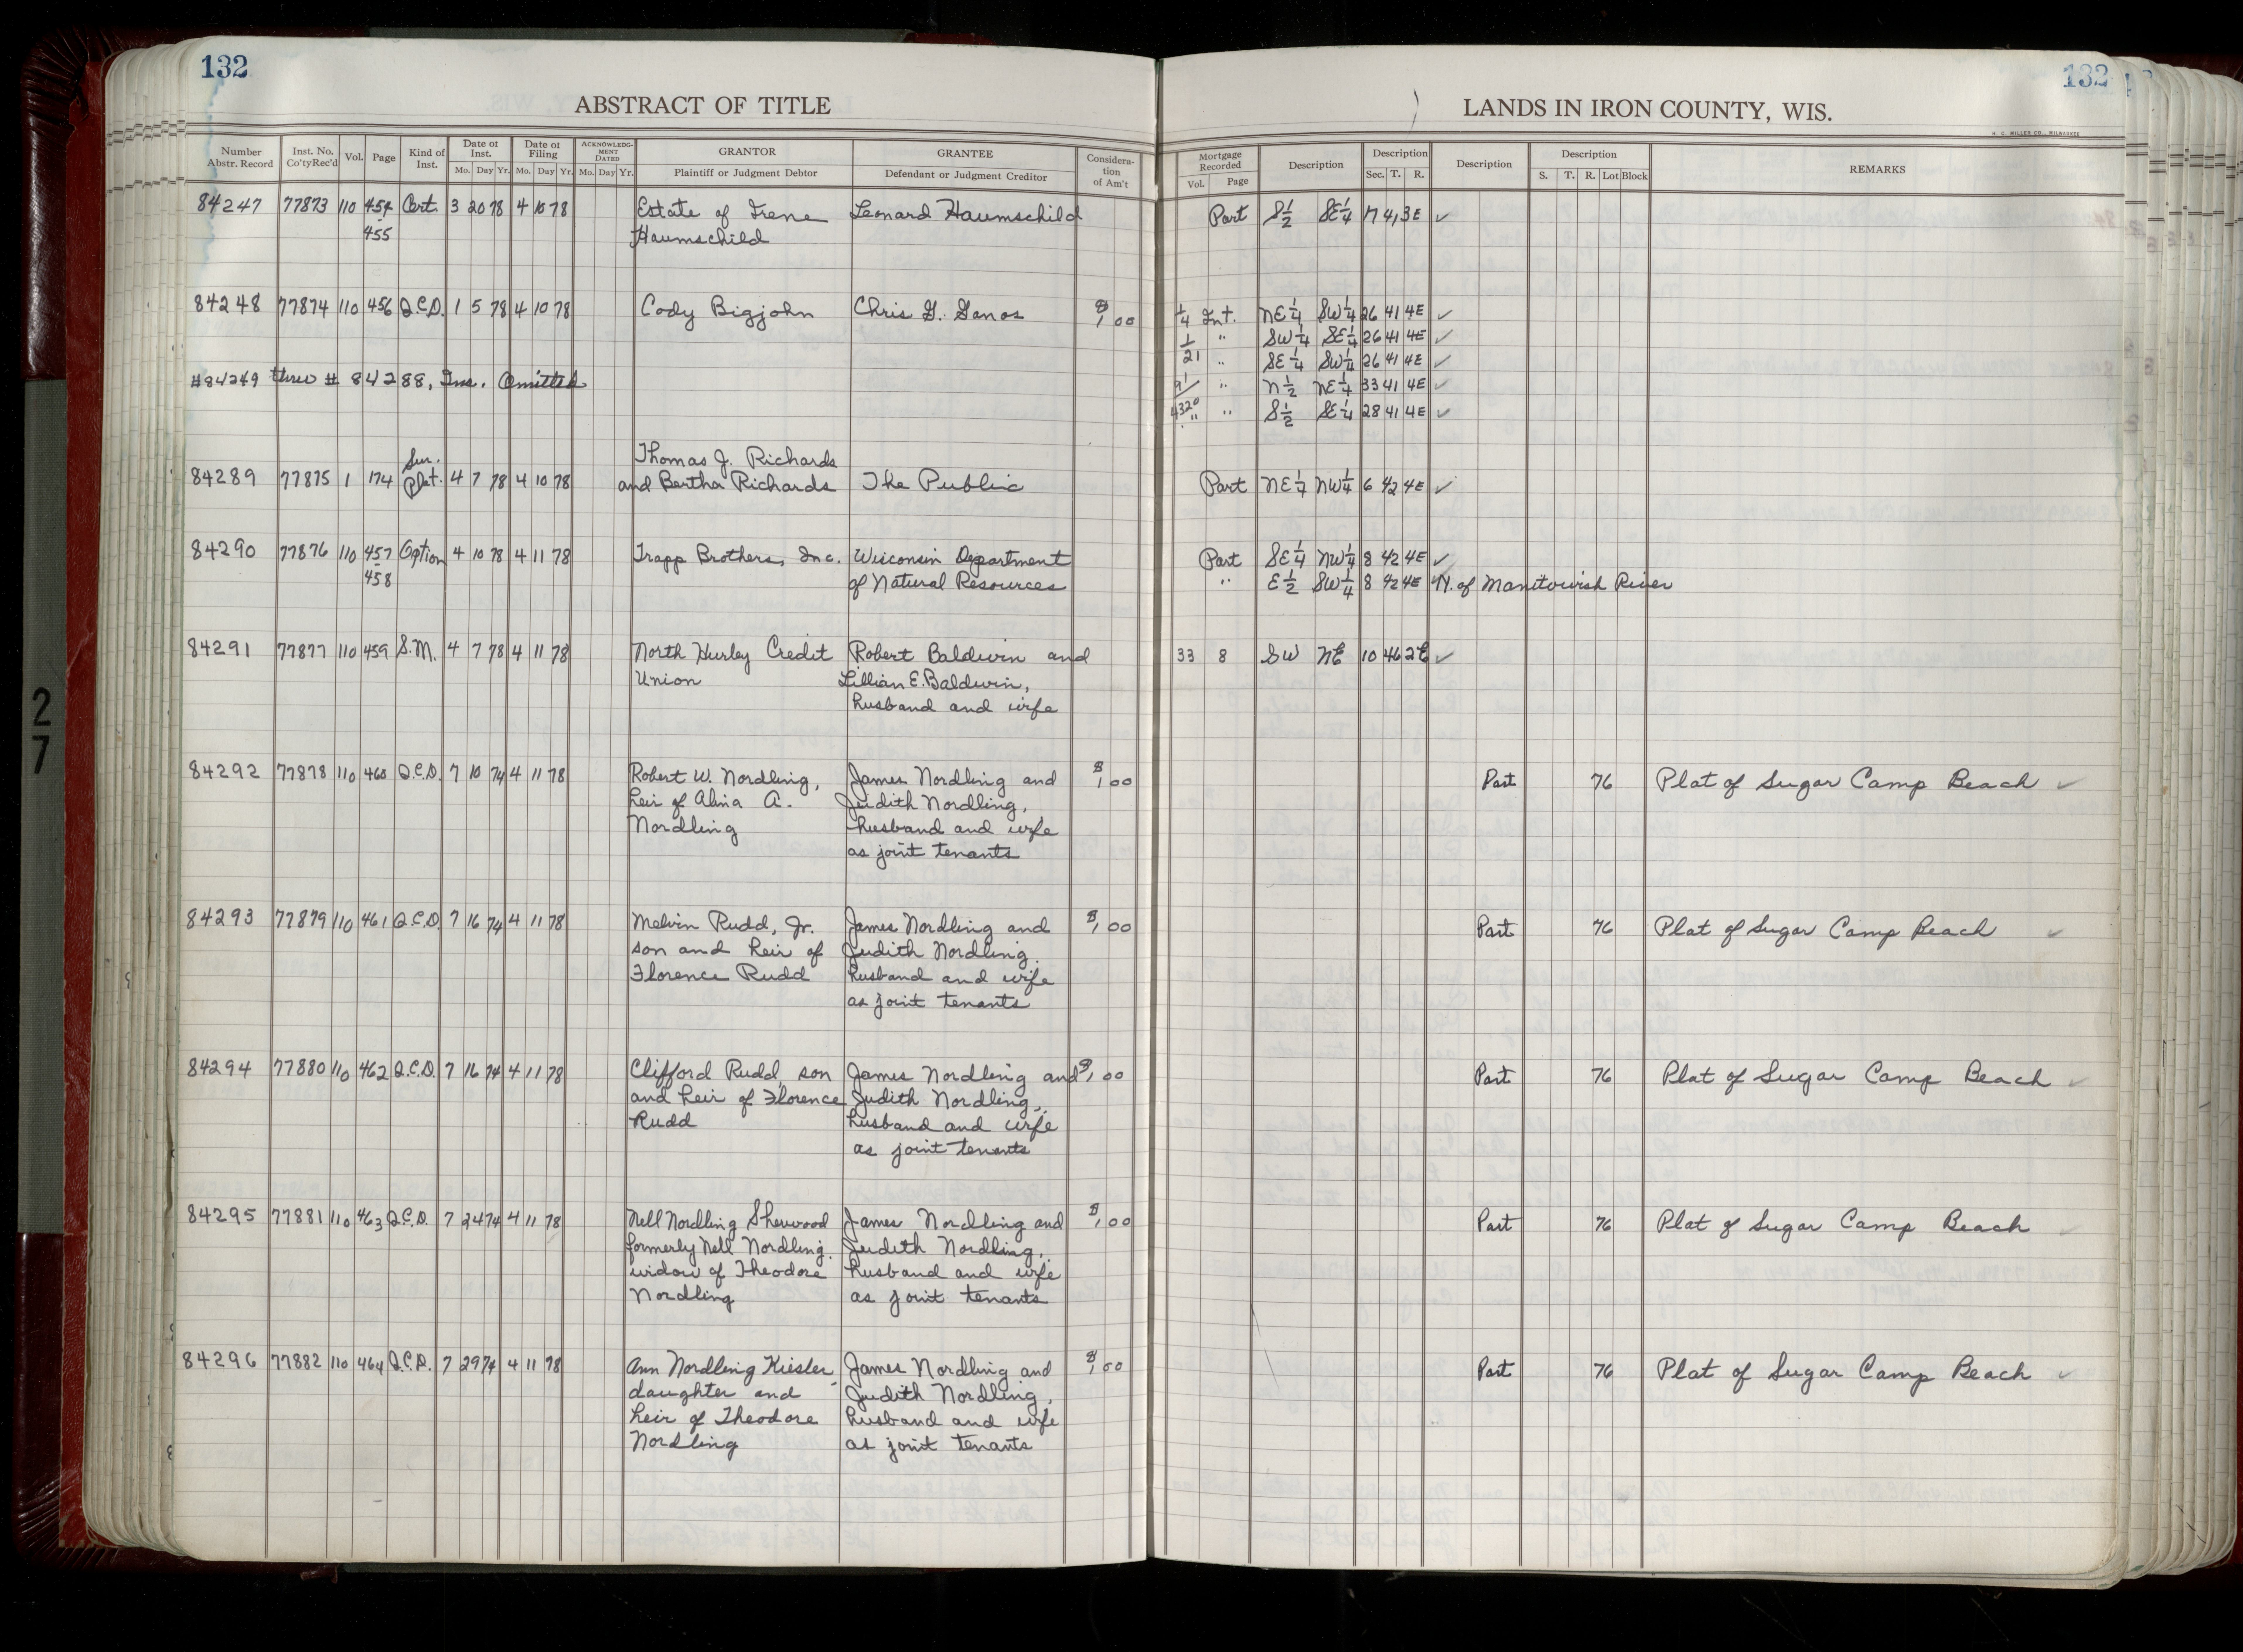 132
132
ABSTRACT OF TITLE
LANDS IN IRON COUNTY, WIS.
H. C. MILLER CO., MILWAUKEE
Number Abstr. Record Inst. No. Co'ty Rec'd Vol. Page Kind of Inst. Date of Inst. Mo. Day Yr. Date of Filing Mo. Day Yr. ACKNOWLEDGMENT DATED Mo. Day Yr. GRANTOR Plaintiff or Judgment Debtor GRANTEE Defendant or Judgment Creditor Consideration of Am't
Mortgage Recorded Vol. Page Description Description Sec. T. R. Description Description S. T. R. Lot Block REMARKS
84247 77873 110 454 Cert. 3 20 78 4 10 78 Estate of Irene Leonard Haumschild Part S½ SE¼ 17 41 3E ✓
455 Haumschild
84248 77874 110 456 Q.C.D. 1 5 78 4 10 78 Cody Bigjohn Chris G. Ganos $1,00 ¼ Int. NE¼ SW¼ 26 41 4E ✓
1 " SW¼ SE¼ 26 41 4E ✓
21 " SE¼ SW¼ 26 41 4E ✓
#84249 thru # 84288, Inc. Omitted " N½ NE¼ 33 41 4E ✓
4320 " S½ SE¼ 28 41 4E ✓
Sur. Thomas J. Richards
84289 77875 1 174 Plat. 4 7 78 4 10 78 and Bertha Richards The Public Part NE¼ NW¼ 6 42 4E ✓
84290 77876 110 457 Option 4 10 78 4 11 78 Trapp Brothers, Inc. Wisconsin Department Part SE¼ NW¼ 8 42 4E ✓
458 of Natural Resources " E½ SW¼ 8 42 4E N. of Manitowish River
84291 77877 110 459 S.M. 4 7 78 4 11 78 North Hurley Credit Robert Baldwin and 33 8 SW NE 10 46 2E ✓
Union Lillian E. Baldwin,
husband and wife
84292 77878 110 460 Q.C.D. 7 10 74 4 11 78 Robert W. Nordling, James Nordling and $1,00 Part 76 Plat of Sugar Camp Beach ✓
heir of Alma A. Judith Nordling,
Nordling husband and wife
as joint tenants
84293 77879 110 461 Q.C.D. 7 16 74 4 11 78 Melvin Rudd, Jr. James Nordling and $1,00 Part 76 Plat of Sugar Camp Beach ✓
son and heir of Judith Nordling,
Florence Rudd husband and wife
as joint tenants
84294 77880 110 462 Q.C.D. 7 16 74 4 11 78 Clifford Rudd, son James Nordling and $1,00 Part 76 Plat of Sugar Camp Beach ✓
and heir of Florence Judith Nordling,
Rudd husband and wife
as joint tenants
84295 77881 110 463 Q.C.D. 7 24 74 4 11 78 Nell Nordling Sherwood James Nordling and $1,00 Part 76 Plat of Sugar Camp Beach ✓
formerly Nell Nordling, Judith Nordling,
widow of Theodore husband and wife
Nordling as joint tenants
84296 77882 110 464 Q.C.D. 7 29 74 4 11 78 Ann Nordling Kiesler, James Nordling and $1,00 Part 76 Plat of Sugar Camp Beach ✓
daughter and Judith Nordling,
heir of Theodore husband and wife
Nordling as joint tenants
27